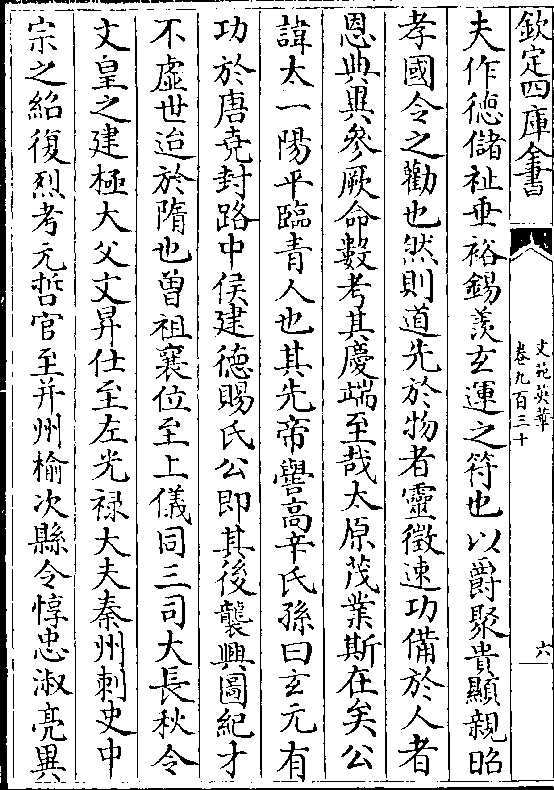 欽定四庫全書
文苑英華
卷九百三十
六
夫作徳儲祉垂裕錫羨玄運之符也以爵聚貴顯親昭
孝國令之勸也然則道先於物者靈徵速功備於人者
恩典異參厥命數考其慶端至哉太原茂業斯在矣公
諱大一陽平臨青人也其先帝嚳高辛氏孫曰玄元有
功於唐堯封路中侯建德賜氏公即其後襲興圖紀才
不虛世迨於隋也曾祖襄位至上儀同三司大長秋令
文皇之建極大父文昇仕至左光祿大夫秦州刺史中
宗之紹復烈考元哲官至并州榆次縣令惇忠淑亮異